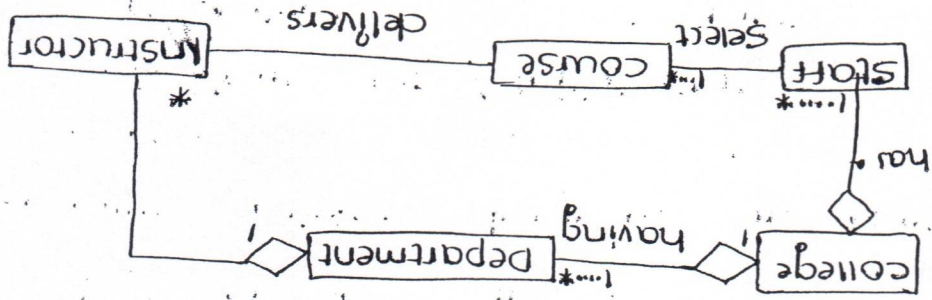 college
1 having 1...* Department 1
has
1...* *
Staff Select 1..* course delivers Instructor